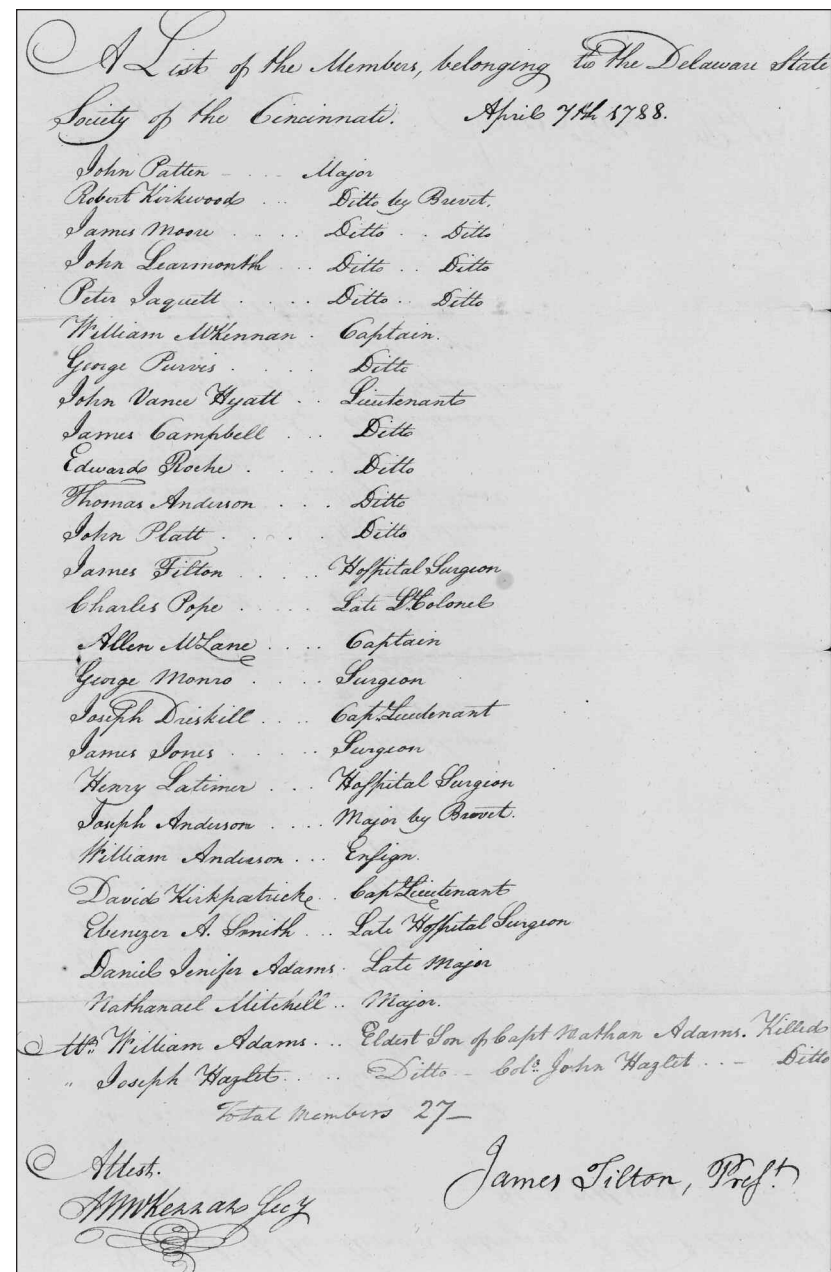 A List of the Members, belonging to the Delaware State
Society of the Cincinnati. April 7th 1788.
John Patten - . . . Major
Robert Kirkwood . . . Ditto by Brevet.
James Moore . . . . Ditto . . Ditto
John Learmonth . . . Ditto . . Ditto
Peter Jaquett . . . . Ditto . . Ditto
William McKennan . Captain.
George Purvis . . . . Ditto
John Vance Hyatt . . Lieutenant
James Campbell . . . Ditto
Edward Roche . . . . Ditto
Thomas Anderson . . . Ditto
John Platt . . . . Ditto
James Tilton . . . . . Hospital Surgeon
Charles Pope . . . . . Late Lt Colonel
Allen McLane . . . . Captain
George Monro . . . . Surgeon
Joseph Driskill . . . . Capt. Lieutenant
James Jones . . . . . Surgeon
Henry Latimer . . . Hospital Surgeon
Joseph Anderson . . . . Major by Brevet.
William Anderson . . . Ensign.
David Kirkpatrick . . Capt Lieutenant
Ebenezer A. Smith . . Late Hospital Surgeon
Daniel Jenifer Adams . Late Major
Nathanael Mitchell . . Major.
Mr. William Adams . . . Eldest Son of Capt Nathan Adams. Killed
" Joseph Hazlet . . . . . Ditto - Col. John Hazlet . . - Ditto
Total Members 27—
Attest. James Tilton, Prest.
Wm McKennan Secy